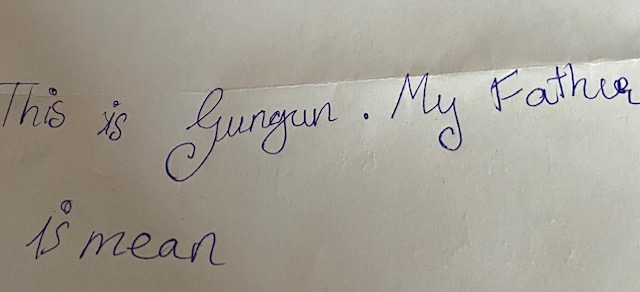 This is Gungun. My Father
is mean